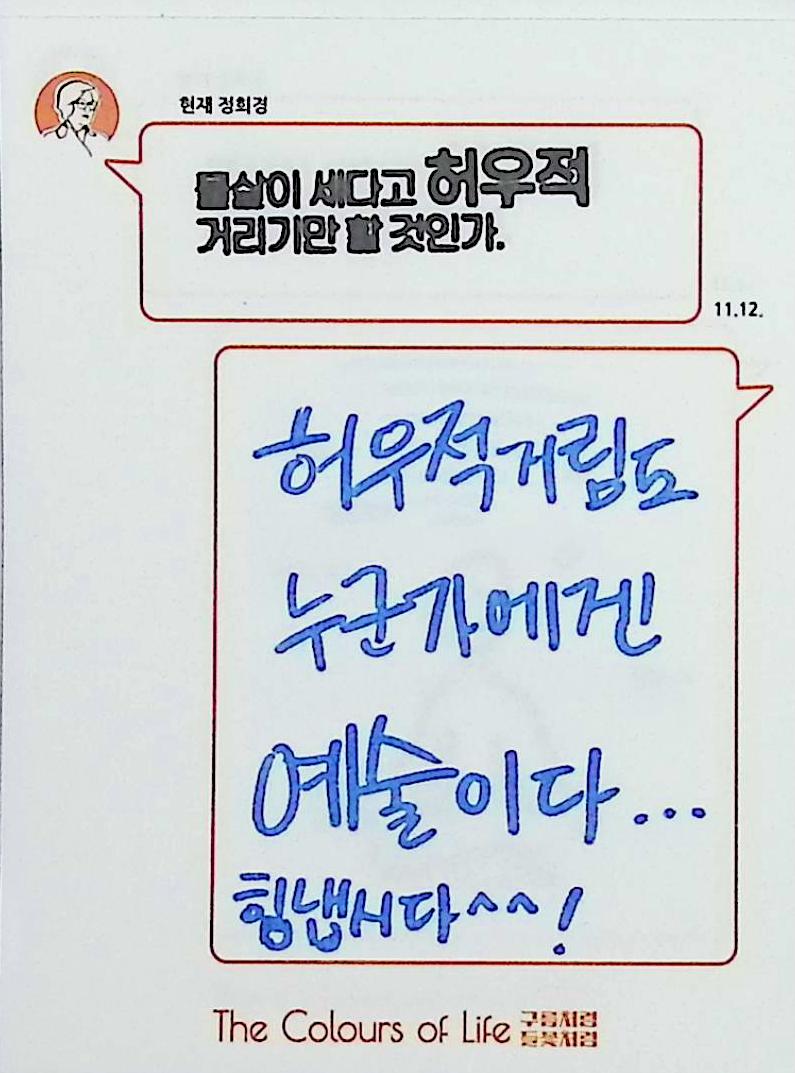 현재 정희경
물살이 세다고 허우적
거리기만 할 것인가.
11.12.
허우적거림도
누군가에겐
예술이다...
힘냅시다^^!
The Colours of Life 구름처럼
들꽃처럼